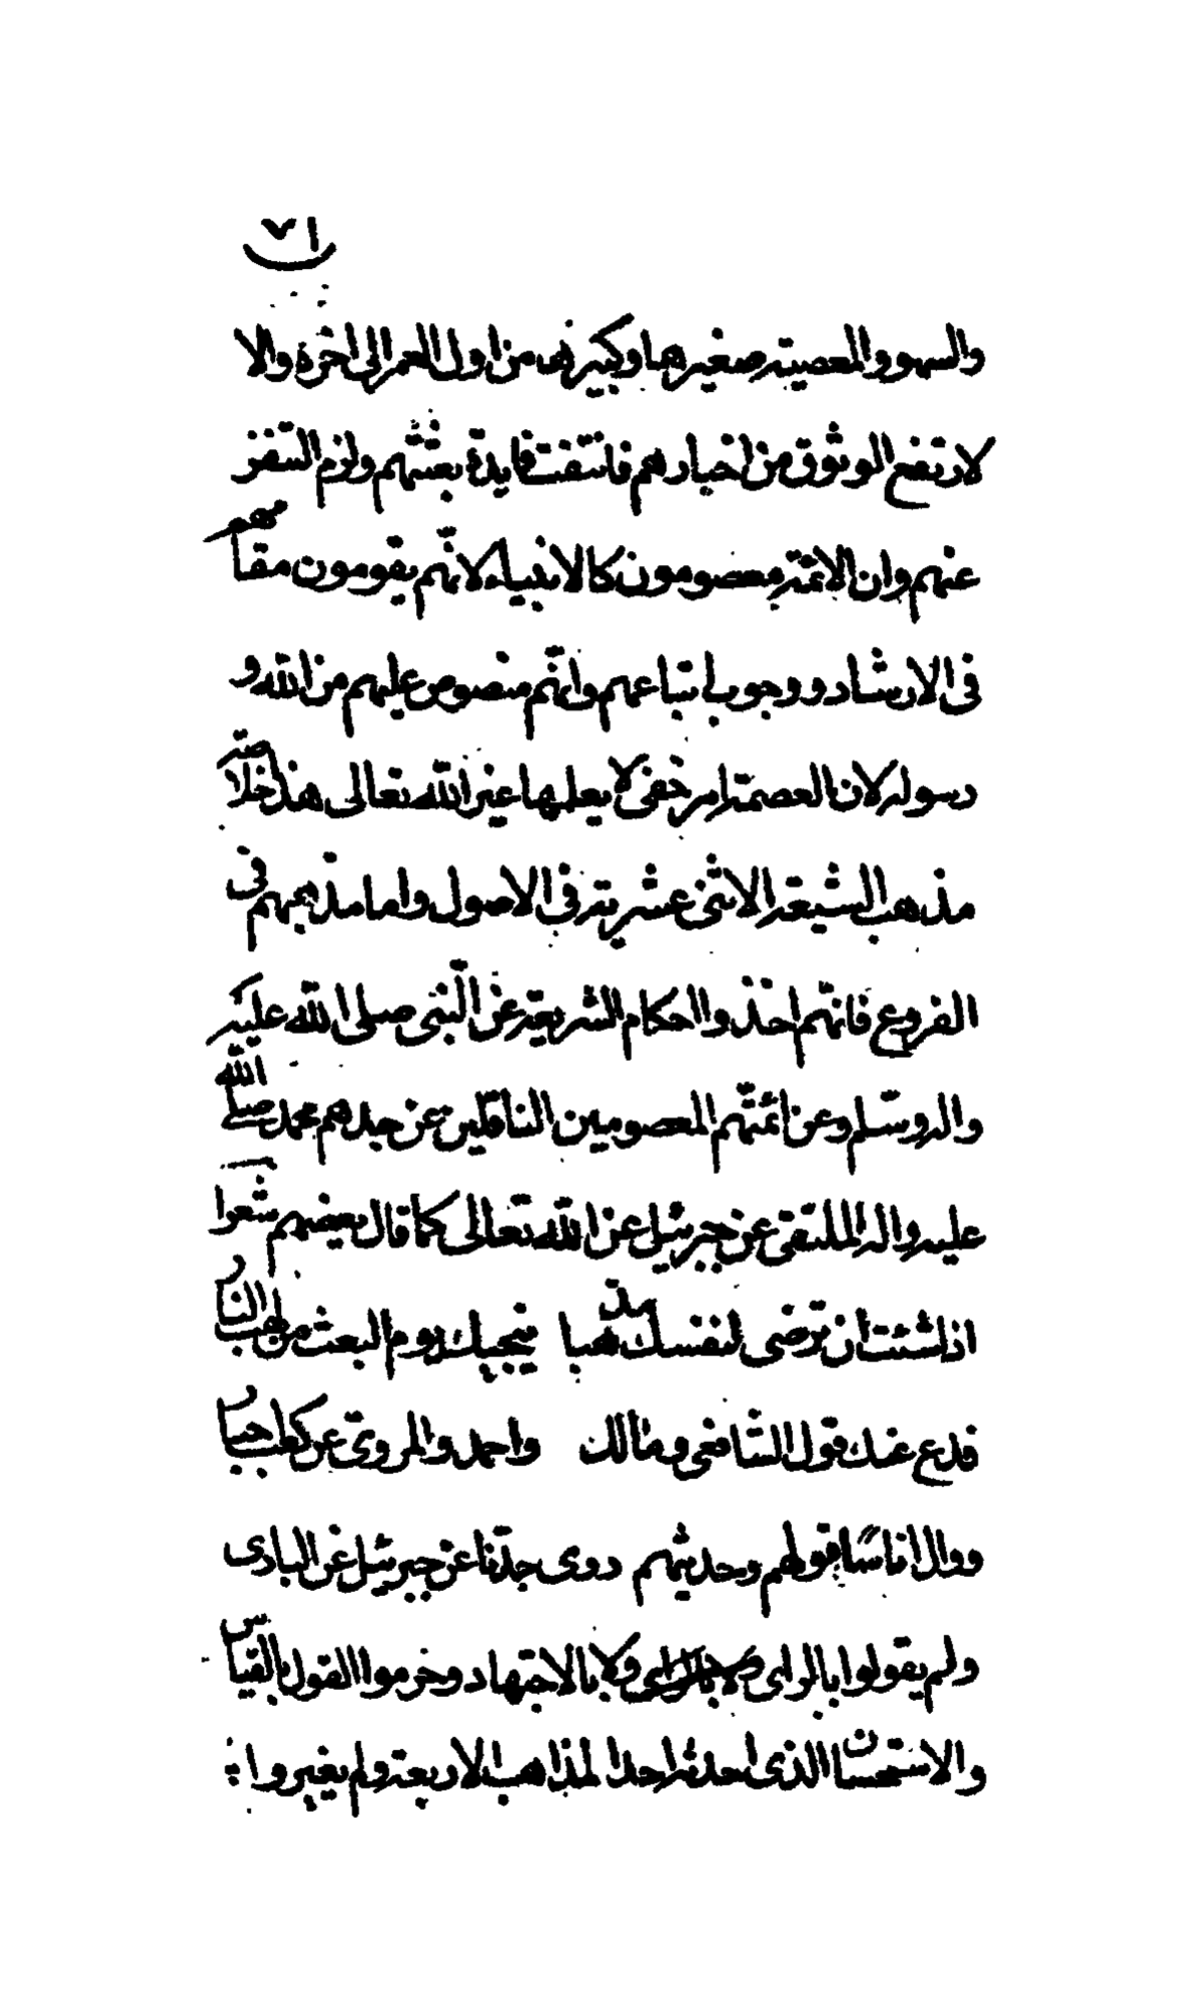 ٧١
والسهو والمعصية صغيرها وكبيرها من اول العمر الى اخره والا
لارتفع الوثوق من اخبارهم فانتفت فايدة بعثتهم ولزم التنفر
عنهم وان الائمة معصومون كالانبياء لانهم يقومون مقامهم
فى الارشاد ووجوب اتباعهم وانهم منصوص عليهم من الله و
رسوله لان العصمة امر خفى لا يعلمها غير الله تعالى هذا خلاصة
مذهب الشيعة الاثنى عشرية فى الاصول واما مذهبهم فى
الفروع فانهم اخذوا احكام الشريعة عن النبى صلى الله عليه
واله وسلم وعن ائمتهم المعصومين الناقلين عن جدهم محمد صلى الله
عليه واله الملتقى عن جبرئيل عن الله تعالى كما قال بعضهم شعرا
اذا شئت ان ترضى لنفسك مذهبا ينجيك يوم البعث من لهب النار
فدع عنك قول الشافعى ومالك واحمد والمروى عن كعب احبار
ووال اناسًا قولهم وحديثهم روى جدنا عن جبرئيل عن البارى
ولم يقولوا بالراى ولا بالاجتهاد وحرموا القول بالقياس
والاستحسان الذى احدثه احدا لمذاهب الاربعة ولم يغيروا